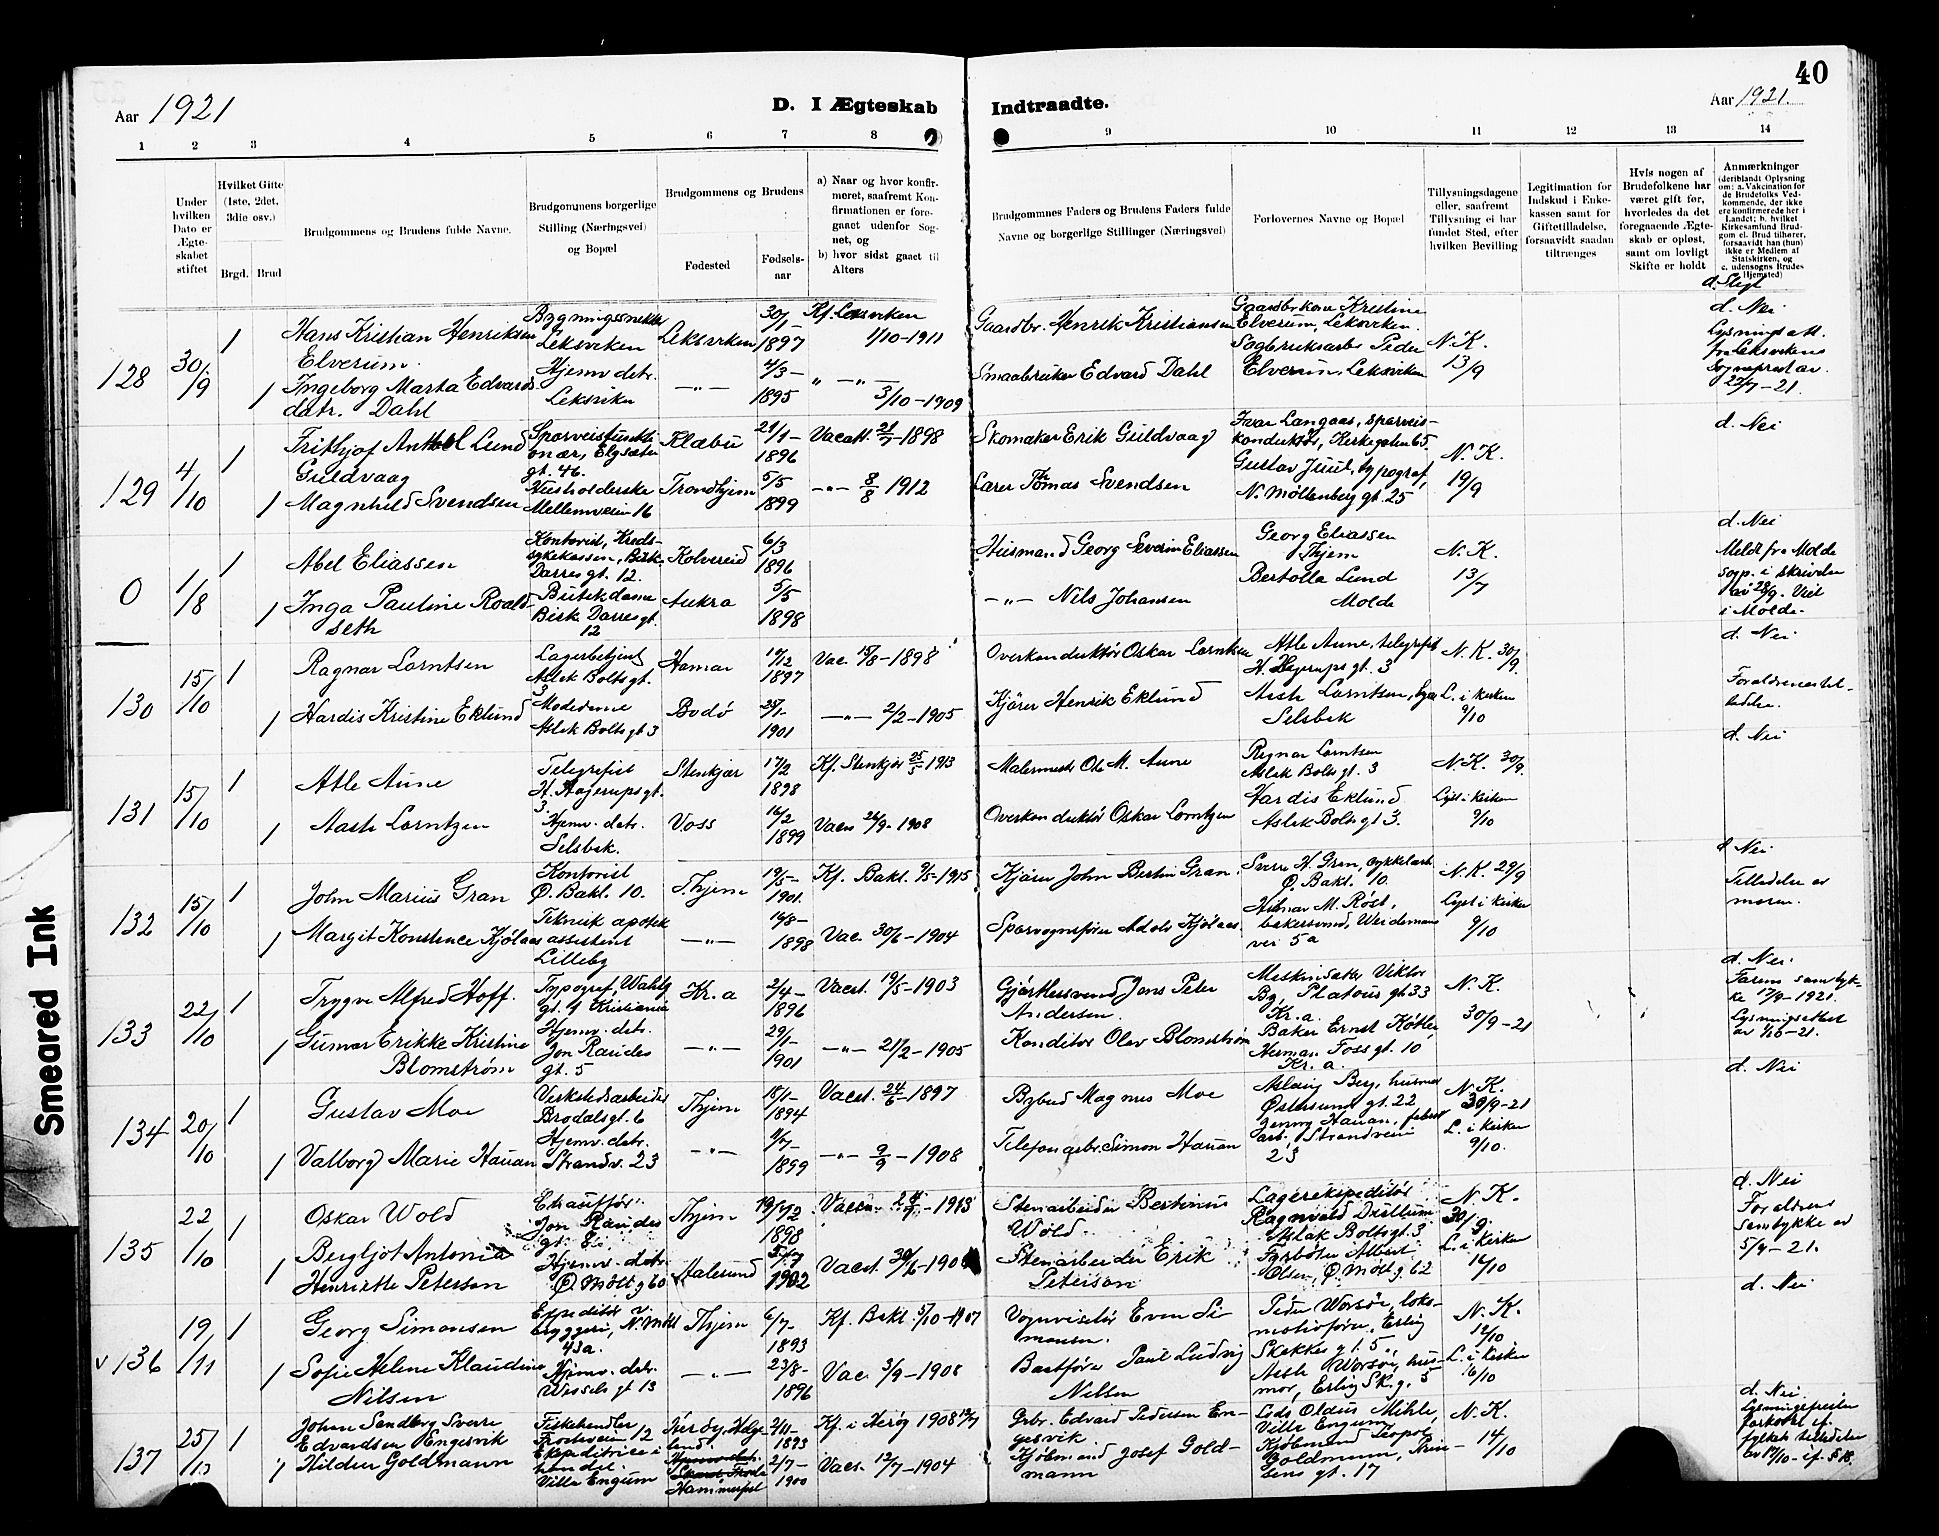 40
Aar 1921
D. I Ægteskab Indtraadte.
Aar 1921.
1 2 3 4 5 6 7 8 9 10 11 12 13 14
Under hvilken Dato er Ægte-skabet stiftet
Hvilket Gifte (1ste, 2det, 3die osv.)
Brgd. Brud
Brudgommens og Brudens fulde Navne.
Brudgommens borgerlige Stilling (Næringsvei) og Bopæl
Brudgommens og Brudens
Fødested
Fødsels-aar
a) Naar og hvor konfir-meret, saafremt Kon-firmationen er fore-gaaet udenfor Sog-net, og
b) hvor sidst gaaet til Alters
Brudgommnes Faders og Brudens Faders fulde Navne og borgerlige Stillinger (Næringsvei)
Forlovernes Navne og Bopæl
Tillysningsdagene eller, saafremt Tillysning ei har fundet Sted, efter hvilken Bevilling
Legitimation for Indskud i Enke-kassen samt for Giftetilladelse, forsaavidt saadan tiltrænges
Hvis nogen af Brudefolkene har været gift før, hvorledes da det foregaaende Ægte-skab er opløst, samt om lovligt Skifte er holdt
Anmærkninger (deriblandt Oplysning om: a. Vakcination for de Brudefolks Ved-kommende, der ikke ere konfirmerede her i Landet; b. hvilket Kirkesamfund Brud-gom el. Brud tilhører, forsaavidt han (hun) ikke er Medlem af Statskirken, og c. udensogns Brudes Hjemsted)
d. Slegt
128 30/9 1 Hans Kristian Henriksen Elverum. Leksviken Leksviken 30/1- 1897 Kf. Leksviken 1/10-1911 Gaardbr. Henrik Kristiansen Gaardbrkone Kristine Elverum, Leksviken. N.K. 13/9 d. Nei
1 Ingeborg Marta Edvards datr. Dahl Hjemv. datr. Leksviken -"- 4/3- 1895 " -"- 3/10-1909 Smaabruker Edvard Dahl Sagbruksarb. Peder Elverum, Leksviken Lysningsatt. fra Leksvikens sogneprest av 22/7-21.
129 4/10 1 Frithjof Lund Guldvaag Elgsæter gt. 46. Klæbu 21/1- 1896 Vacatt. 21/7-1898 Skomaker Erik Guldvaag Ivar Langaas, sporveis-konduktør, Kirkegaten 65. N.K. 19/9 d. Nei
1 Magnhild Svendsen Husholderske Mellemveien 16 Trondhjem 5/5 1899 -"- 8/8 1912 Lærer Tomas Svendsen Gustav Juul, typograf, N. Møllenberg gt. 25
0 1/8 1 Abel Eliassen Kontorist, Kreds-sykekassen, Birk. Darres gt. 12. Kolvereid 6/3 1896 Husmand Georg Severin Eliassen Georg Eliassen Thjem N.K. 13/7 d. Nei
1 Inga Pauline Roald-seth Butikdame Birk. Darres gt. 12 Aukra 5/5 1898 -"- Nils Johansen Lund Molde Meldt fra Molde sogp. i skrivelse av 28/9. Viet i Molde.
130 15/10 1 Ragnar Lorntsen Lagerbetjent Aslak Bolts gt. 3 Hamar 1897 Vac. 15/8-1898 Overkonduktør Oskar Lorntsen Atle Aune, telegrafist H. Hagerups gt. 3 N.K. 30/9. d. Nei
1 Hardis Kristine Eklund Aslak Bolts gt 3 Bodø 1901 -"- 2/2-1905 Kjører Henrik Eklund Lorntsen, Selsbak L. i kirken 9/10
131 15/10 1 Atle Aune Telegrafist H. Hagerups gt. 3. Stenkjær 17/2 1898 Kf. Stenkjær 25/5-1913 Malermester Ole M. Aune Ragnar Lorntsen Aslak Bolts gt. 3 N.K. 30/9. d. Nei
1 Lorntzen Hjemv. datr. Selsbak. Voss 16/2 1899 Vacc. 26/9-1908 Overkonduktør Oskar Lorntzen Hardis Eklund Aslak Bolts gt 3. Lyst i kirken 9/10
132 15/10 1 John Marius Gran Kontorist Ø. Bakl. 10. Thjem 19/5- 1901. Kf. Bakl. 9/5-1915 Kjører John Bertin Gran Sverre H. Gran, cykkelarb. Ø. Bakl. 10. N.K. 29/9 d. Nei
1 Margit Konstance Kjølaas Teknisk apotek assistent Lilleby -"- 1898 Vac. 30/6-1904 Sporvognsfører Adolf Kjølaas Hilmar M. Røst, bakersvend, Weidemans vei 5a Lyst i kirken 9/10 Tilladelse av moren.
133 22/10 1 Trygve Alfred Hoff. Typograf, gt. 9 Kristiania Kr.a 2/4- 1896 Vacat. 19/5-1903 Jens Peter Andersen. Maskinsætter Viktor By, Platous gt 33 Kr.a. N.K. 30/9-21 d. Nei.
1 Gunvor Erikke Kristine Blomstrøm Hjemv. datr. Jon Raudes gt. 5 -"- 29/1- 1901 -"- 21/2-1905 Konditor Olav Blomstrøm Baker Ernst Køtler, Herman Foss gt. 10 Kr.a. Farens samtyk-ke 17/9-1921. Lysningsattest
134 20/10 1 Gustav Moe Verkstedsarbeider Brodals gt. 6 Thjem 18/1- 1894 Vacat. 24/6-1897 Bybud Magnus Moe Aslaug Berg, husmor Østersunds gt. 22 N.K. 30/9-21 d. Nei
1 Valborg Marie Hauan Hjemv. datr. Strandv. 23 -"- 1899 -"- 9/9-1908 Telefonarbr. Simon Hauan Jenny Hauan, fabrik arb., Strandveien 23 L. i kirken 9/10.
135 22/10 1 Oskar Wold Jon Raudes gt. 8 Thjem 1898 1913 Stenarbeider Bertinius Wold Lagerekspeditør Ragnvald Aslak Bolts gt. 3 N.K. 30/9. d. Nei
1 Bergljot Antonie Henriette Petersen Hjemv. datr. Ø. Møll. g 60 Aalesund 1902 Vacat. 30/6- Stenarbeider Erik Peterson Fyrbøter Albert Olsen, Ø. Møll g. 62 L. i kirken 16/10 Forældrenes samtykke av 5/9-21.
v 136 19/11 1 Georg Simonsen Ekspeditør v. bryggeri, N. Møll 43a. Thjem 6/7- 1893 Kf. Bakl. 5/10-1907 Vognvisitør Even Si-monsen. Peder Worsøe, loko-motivfører, Erling Skakkes gt. 5. N.K. 12/10 d. Nei
1 Sofie Helene Klaudine Nilsen Hjemv. datr. Wessels gt 13 -"- 23/8- 1896 Vac. 3/9-1908 Paul Ludvig Nilsen Worsøe, hus-mor, Erling Sk. g. 5 L. i kirken 16/10
137 25/10 1 Johan Sandberg Sverre Edvardsen Engesvik Fiskehandler Herøy, Helge-land. 2/11- 1893 Kf. i Herøy 1908 Grbr. Edvard Pedersen En-gesvik Villa Engum N.K. 14/10 d. Nei.
1 Hildur Goldmann Ekspeditrice i handel. Villa Engum Hammerfest 2/7- 1900 Vacc. 12/7-1904 Kjøbmand Josef Gold-mann Kjøbmand Leopol Goldmann, gt. 17
Smeared Ink